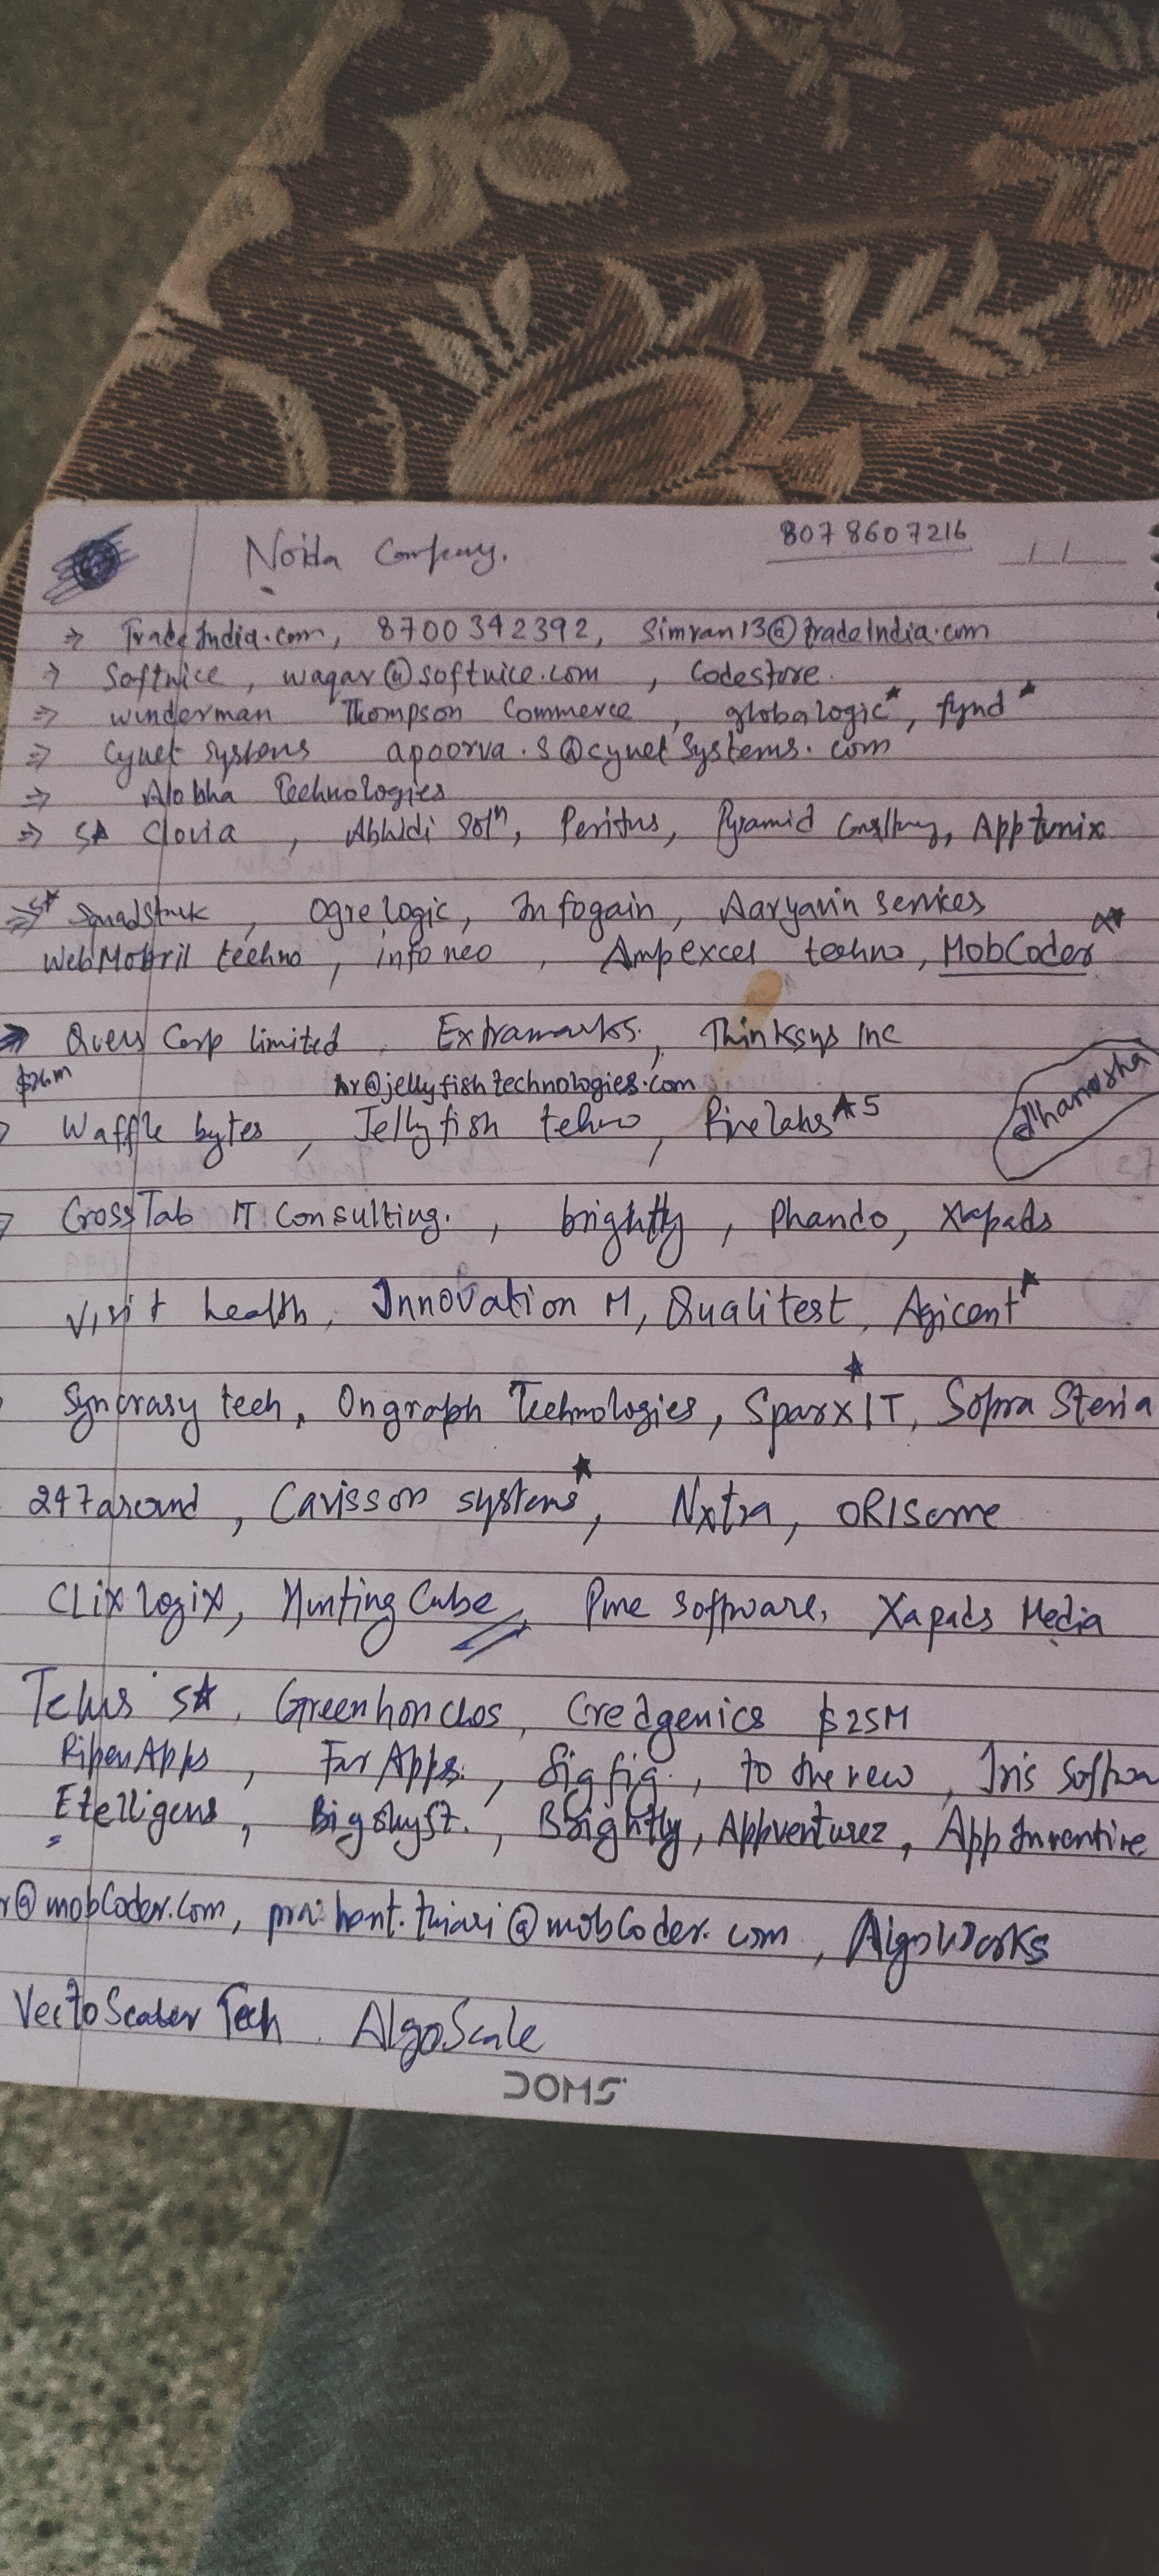 Noida Company. 8078607216
⇒ TradeIndia.com, 8700342392, Simran13@tradeIndia.com
→ Softnice, waqar@softnice.com, Codestore.
⇒ winderman Thompson Commerce, globalogic★, fynd★
⇒ Cynet systems apoorva.s@cynetSystems.com
⇒ Alobha Technologies
⇒ 5★ Clovia, Abhidi Solⁿ, Peritus, Pyramid Consltung, Apptunix
⇒ 5★ Squadstack, Ogrelogic, Infogain, Aaryavin Services
WebMobril techno, infoneo, Ampexcel techno, MobCoder★
⇒ Quess Corp limited, Extramarks, Thinksys Inc
$26m hr@jellyfishtechnologies.com dhanusha
Waffle bytes, Jellyfish tehno, Pinelabs★5
CrossTab IT Consulting., brightly, Phando, Xapads
Visit health, Innovation M, Qualitest, Agicent★
Syncrasy tech, Ongraph Technologies, SparxIT★, Sopra Steria
247around, Cavisson systems★, Nxtra, ORIserve
CLixlogix, HuntingCube, Pure Software, Xapads Media
Telus 5★, Greenhonchos, Credgenics $25M
RipenApps, FurApps., Sigfig., to the new, Iris Softwa
Etelligens, Bigohyst., Brightly, Appventurez, AppInventive
r@mobCoder.com, @mobCoder.com, AlgoWorks
VectoScaler Tech, AlgoScale
DOMS